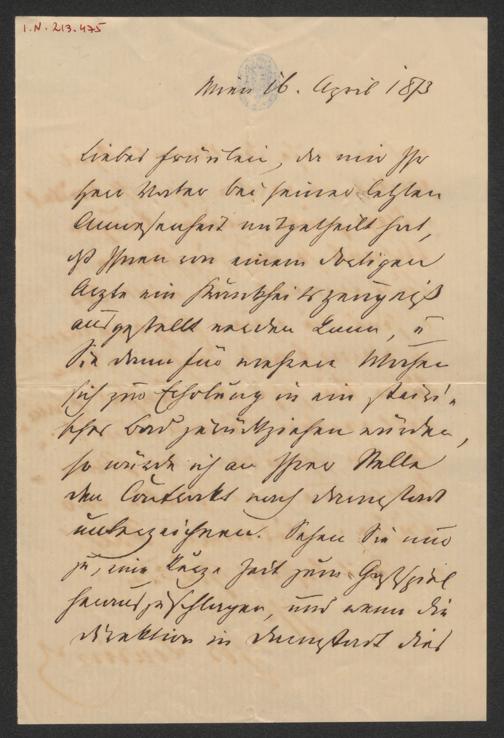 I.N. 213.475
Wien 16. April 1873
Liebes Fräulein, da mir Ihr
Herr Vater bei seiner letzten
Anwesenheit mitgetheilt hat,
daß Ihnen von einem dortigen
Arzte ein Krankheitszeugniß
ausgestellt werden kann, u
Sie dann für mehrere Wochen
sich zur Erholung in ein steiri-
sches Bad zurückziehen würden,
so würde ich an Ihrer Stelle
den Contrakt nach Darmstadt
unterzeichnen. Sehen Sie nur
zu, eine kurze Zeit zum Gastspiel
herauszuschlagen, und wenn die
Direktion in Darmstadt dies